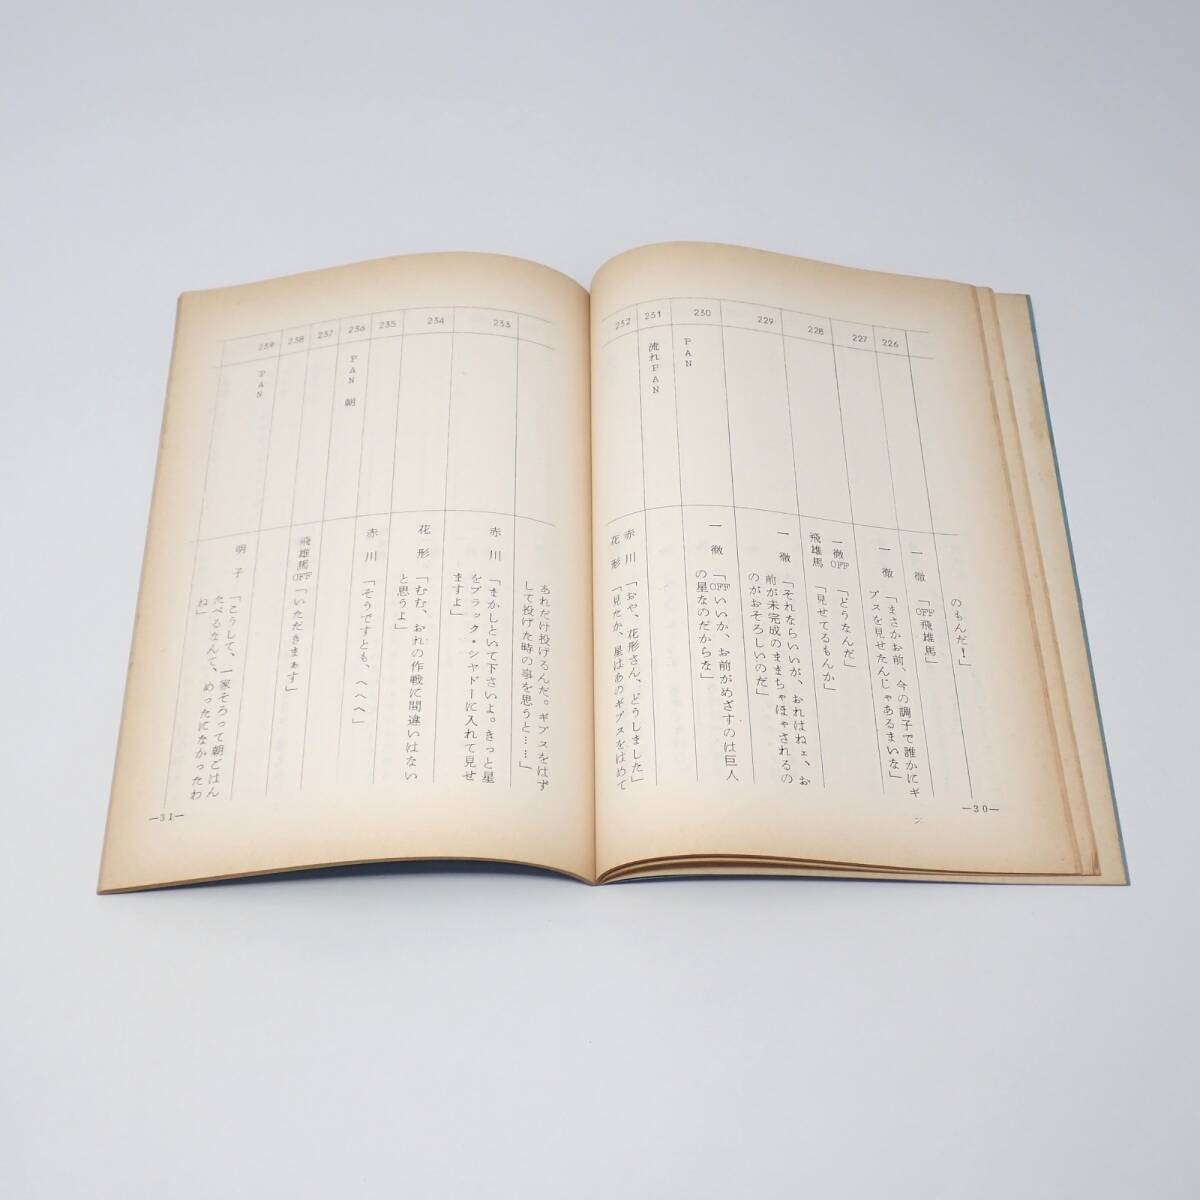 のもんだ！」
226
一 徹 「OFF飛雄馬」
227
一 徹 「まさかお前、今の調子で誰かにギ
プスを見せたんじゃあるまいな」
228
一徹OFF 「どうなんだ」
飛雄馬 「見せてるもんか」
229
一 徹 「それならいいが、おれはねェ、お
前が未完成のままちゃほゃされるの
のがおそろしいのだ」
230
PAN
一 徹 「OFFいいか、お前がめざすのは巨人
の星なのだからな」
231
流れPAN
232
赤 川 「おや、花形さん、どうしました」
花 形 「見たか、星はあのギプスをはめて
—30—
あれだけ投げるんだ。ギプスをはず
して投げた時の事を思うと……」
233
赤 川 「まかしといて下さいよ。きっと星
をブラック・シャドーに入れて見せ
ますよ」
234
花 形 「むむ、おれの作戦に間違いはない
と思うよ」
235
赤 川 「そうですとも、へへへへ」
236
PAN 朝
237
238
飛雄馬OFF 「いただきまぁす」
239
PAN
明 子 「こうして、一家そろって朝ごはん
たべるなんて、めったになかったわ
ね」
—31—